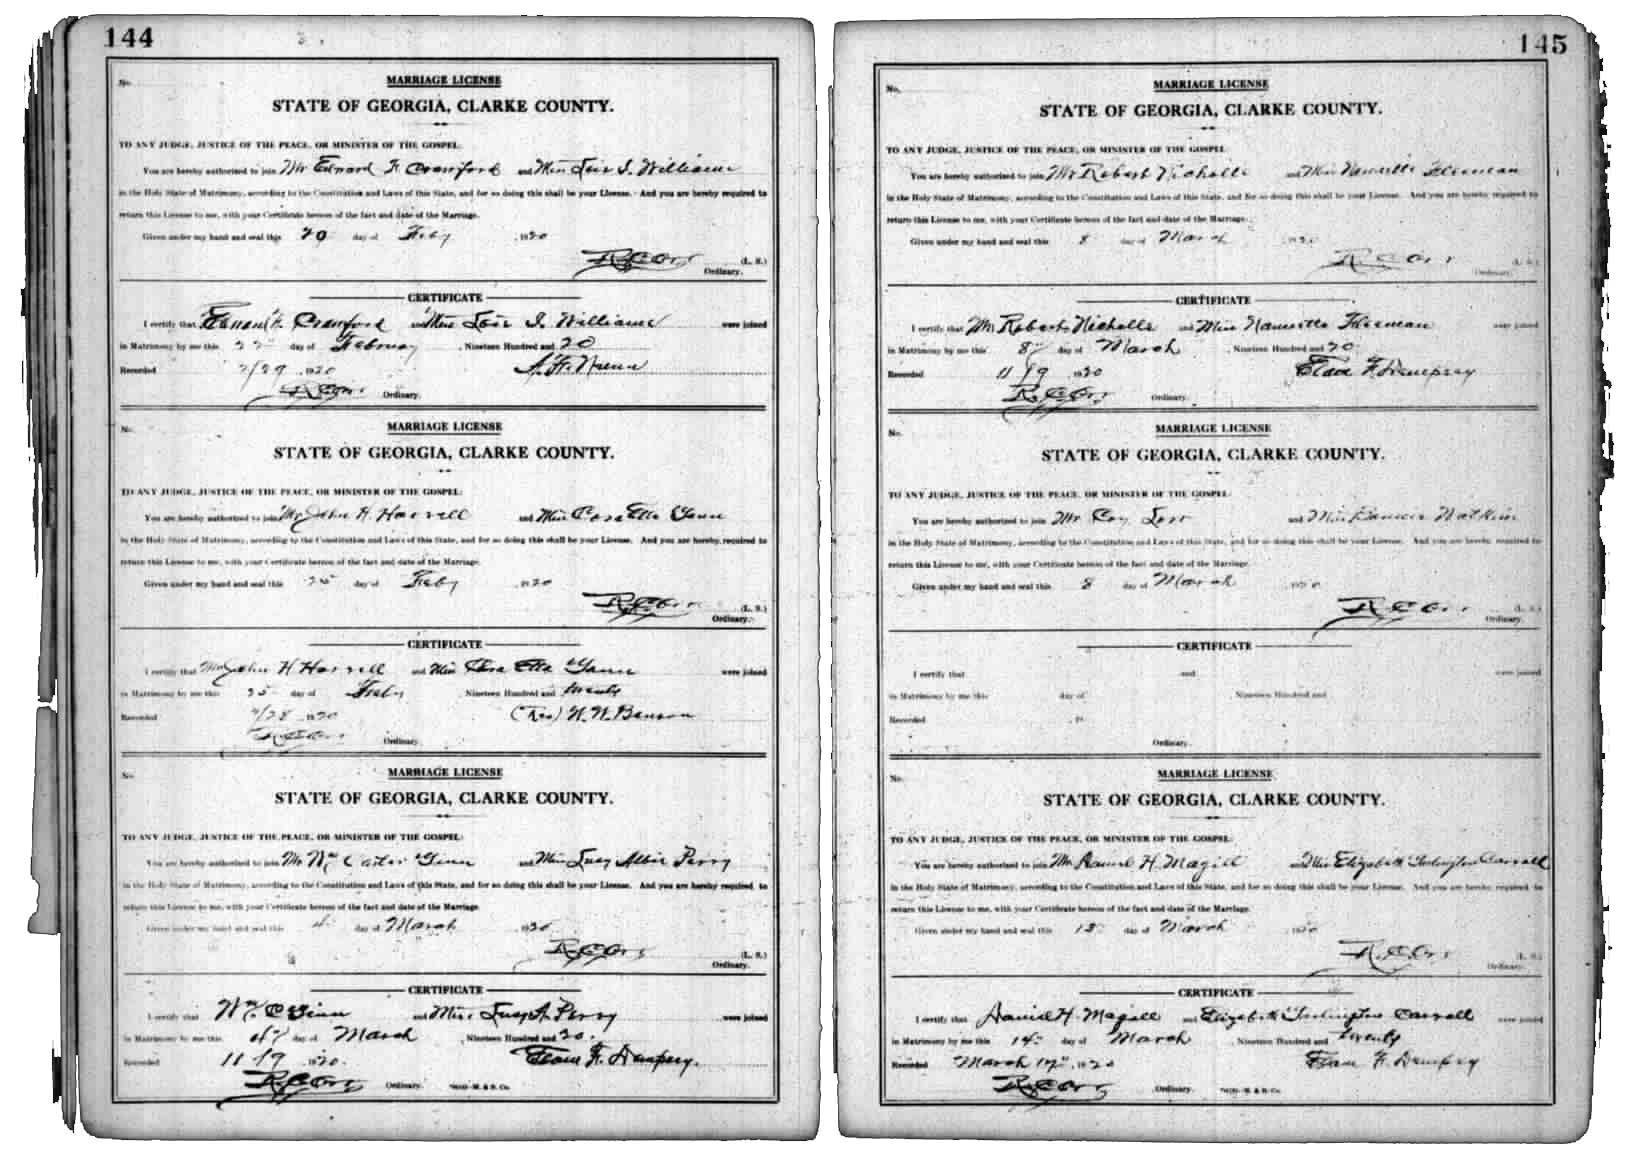 144
No.
MARRIAGE LICENSE
STATE OF GEORGIA, CLARKE COUNTY.
TO ANY JUDGE, JUSTICE OF THE PEACE, OR MINISTER OF THE GOSPEL:
You are hereby authorized to join Mr Edward F. Crawford and Miss Lois I. Williams
in the Holy State of Matrimony, according to the Constitution and Laws of this State, and for so doing this shall be your License. And you are hereby required to
return this License to me, with your Certificate hereon of the fact and date of the Marriage.
Given under my hand and seal this 20 day of Feby 1920
R C Orr (L. S.)
Ordinary.
CERTIFICATE
I certify that Edward F. Crawford and Miss Lois I. Williams were joined
in Matrimony by me this 22 day of February, Nineteen Hundred and 20
Recorded 2/29 1920
R C Orr Ordinary.
No.
MARRIAGE LICENSE
STATE OF GEORGIA, CLARKE COUNTY.
TO ANY JUDGE, JUSTICE OF THE PEACE, OR MINISTER OF THE GOSPEL:
You are hereby authorized to join Mr John H. Harrell and Miss Cora Etta Gann
in the Holy State of Matrimony, according to the Constitution and Laws of this State, and for so doing this shall be your License. And you are hereby required to
return this License to me, with your Certificate hereon of the fact and date of the Marriage.
Given under my hand and seal this 25 day of Feby 1920
R C Orr (L. S.)
Ordinary.
CERTIFICATE
I certify that Mr John H Harrell and Miss Cora Etta Gann were joined
in Matrimony by me this 25 day of Feby Nineteen Hundred and twenty
Recorded 2/28 1920 (Rev) W. W. Benson
R C Orr Ordinary.
No.
MARRIAGE LICENSE
STATE OF GEORGIA, CLARKE COUNTY.
TO ANY JUDGE, JUSTICE OF THE PEACE, OR MINISTER OF THE GOSPEL:
You are hereby authorized to join Mr Wm Carter Ginn and Miss Lucy Albie Perry
in the Holy State of Matrimony, according to the Constitution and Laws of this State, and for so doing this shall be your License. And you are hereby required to
return this License to me, with your Certificate hereon of the fact and date of the Marriage.
Given under my hand and seal this 4 day of March 1920
R C Orr (L. S.)
Ordinary.
CERTIFICATE
I certify that Wm C Ginn and Miss Lucy A. Perry were joined
in Matrimony by me this day of March, Nineteen Hundred and 20.
Recorded 11/19 1920. Elam F. Dempsey.
R C Orr Ordinary.
145
No.
MARRIAGE LICENSE
STATE OF GEORGIA, CLARKE COUNTY.
TO ANY JUDGE, JUSTICE OF THE PEACE, OR MINISTER OF THE GOSPEL
You are hereby authorized to join Mr Robert Nicholls and Miss Nannette
in the Holy State of Matrimony, according to the Constitution and Laws of this State, and for so doing this shall be your License. And you are hereby required to
return this License to me, with your Certificate hereon of the fact and date of the Marriage.
Given under my hand and seal this 8 day of March 1920
R C Orr (L. S.)
Ordinary.
CERTIFICATE
I certify that Mr Robert Nicholls and Miss Nannette were joined
in Matrimony by me this 8 day of March, Nineteen Hundred and 20
Recorded 11/19 1920 Elam F. Dempsey
R. C. Orr Ordinary.
No.
MARRIAGE LICENSE
STATE OF GEORGIA, CLARKE COUNTY.
TO ANY JUDGE, JUSTICE OF THE PEACE, OR MINISTER OF THE GOSPEL:
You are hereby authorized to join Mr Coy and Miss Watkins
in the Holy State of Matrimony, according to the Constitution and Laws of this State, and for so doing this shall be your License. And you are hereby required to
return this License to me, with your Certificate hereon of the fact and date of the Marriage.
Given under my hand and seal this 8 day of March 1920
R C Orr (L. S.)
Ordinary.
CERTIFICATE
I certify that and were joined
in Matrimony by me this day of Nineteen Hundred and
Recorded 19
Ordinary.
No.
MARRIAGE LICENSE
STATE OF GEORGIA, CLARKE COUNTY.
TO ANY JUDGE, JUSTICE OF THE PEACE, OR MINISTER OF THE GOSPEL:
You are hereby authorized to join Mr Daniel H. Magill and Miss Elizabeth Carroll
in the Holy State of Matrimony, according to the Constitution and Laws of this State, and for so doing this shall be your License. And you are hereby required to
return this License to me, with your Certificate hereon of the fact and date of the Marriage.
Given under my hand and seal this 13 day of March 1920
R. C. Orr (L. S.)
Ordinary.
CERTIFICATE
I certify that Daniel H. Magill and Elizabeth Carroll were joined
in Matrimony by me this 14 day of March Nineteen Hundred and twenty
Recorded March 17 1920 Elam F. Dempsey
R C Orr Ordinary.